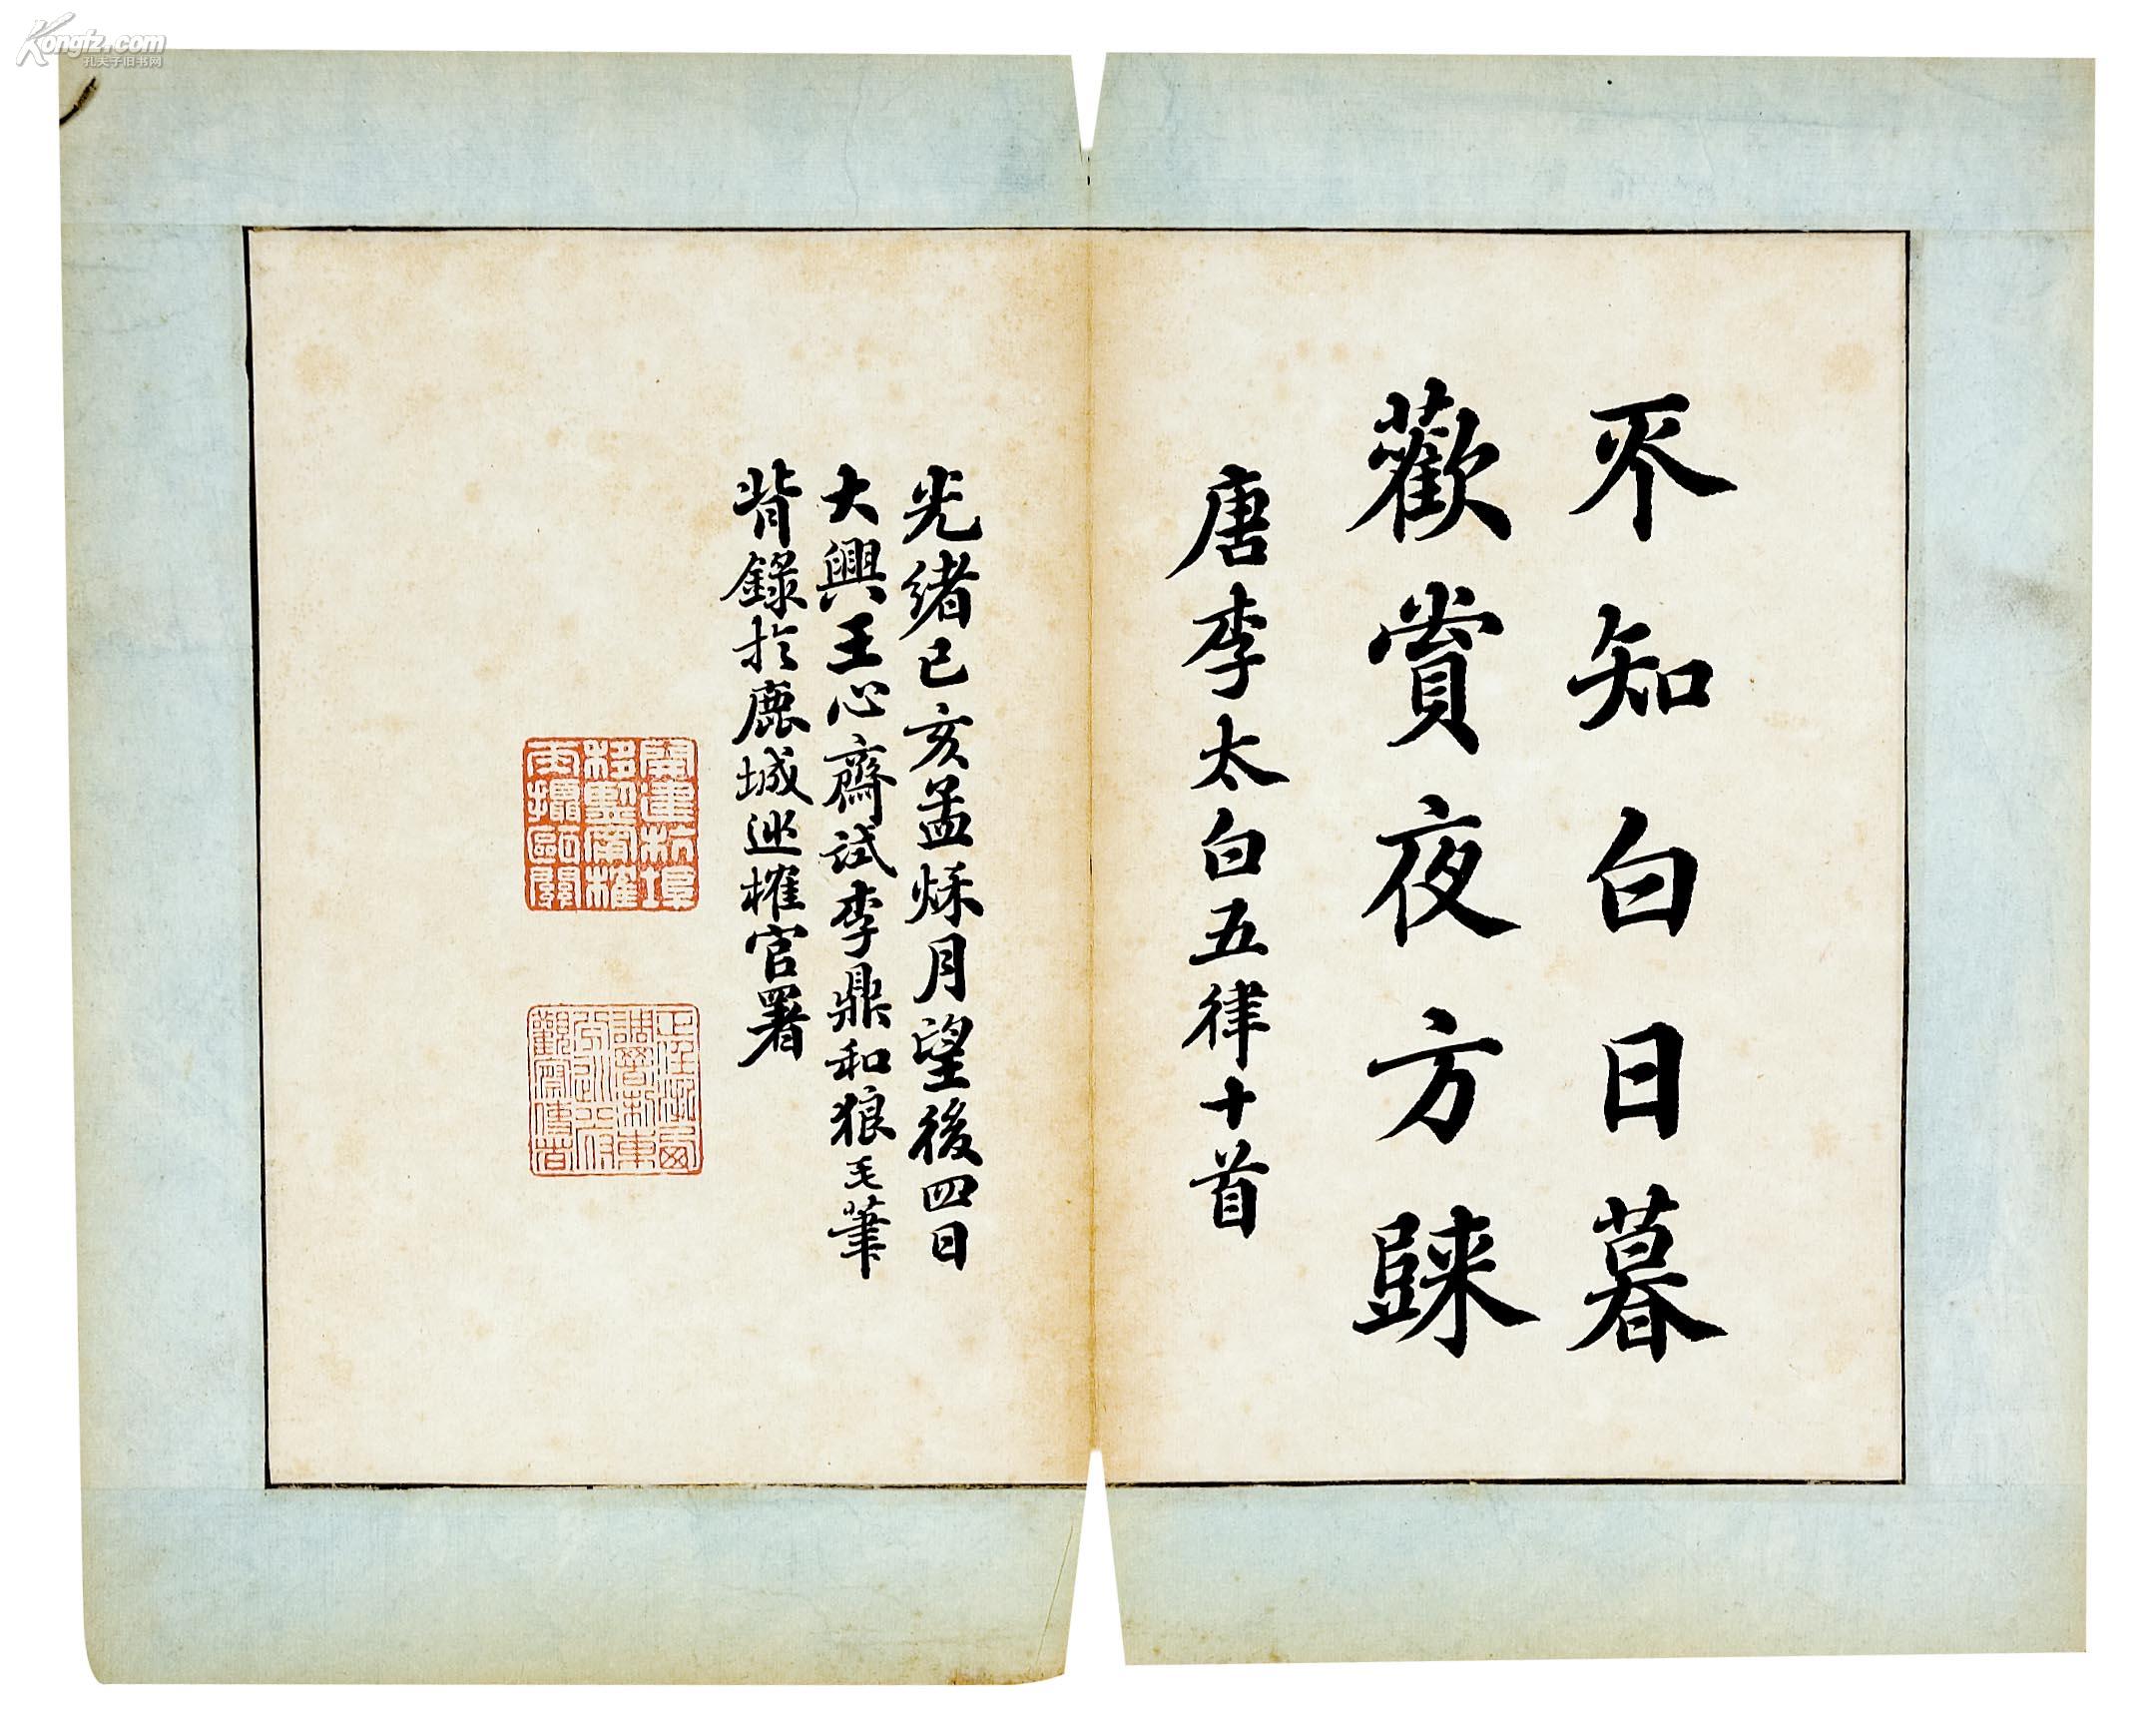 不知白日暮
歡賞夜方踈
唐李太白五律十首
光緒己亥孟烁月望後四日
大興王心齋試李鼎和狼毛筆
背錄於鹿城巡榷官署
Kongfz.com
孔夫子旧书网